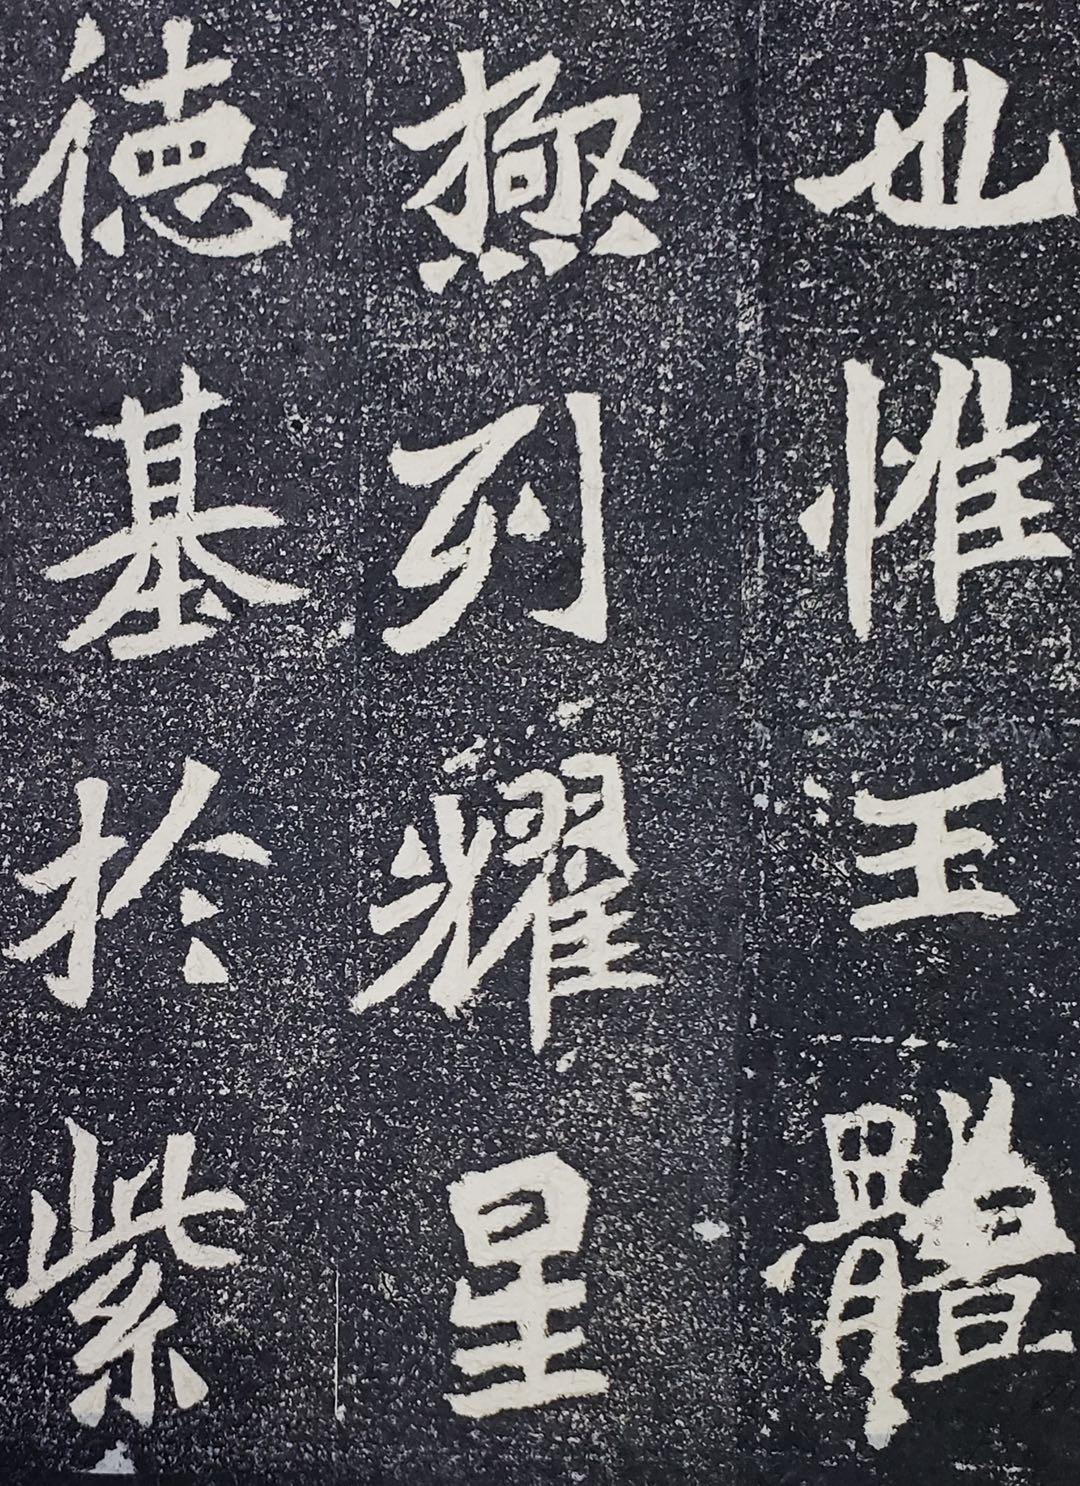 也惟王體
極列耀星
德基於紫